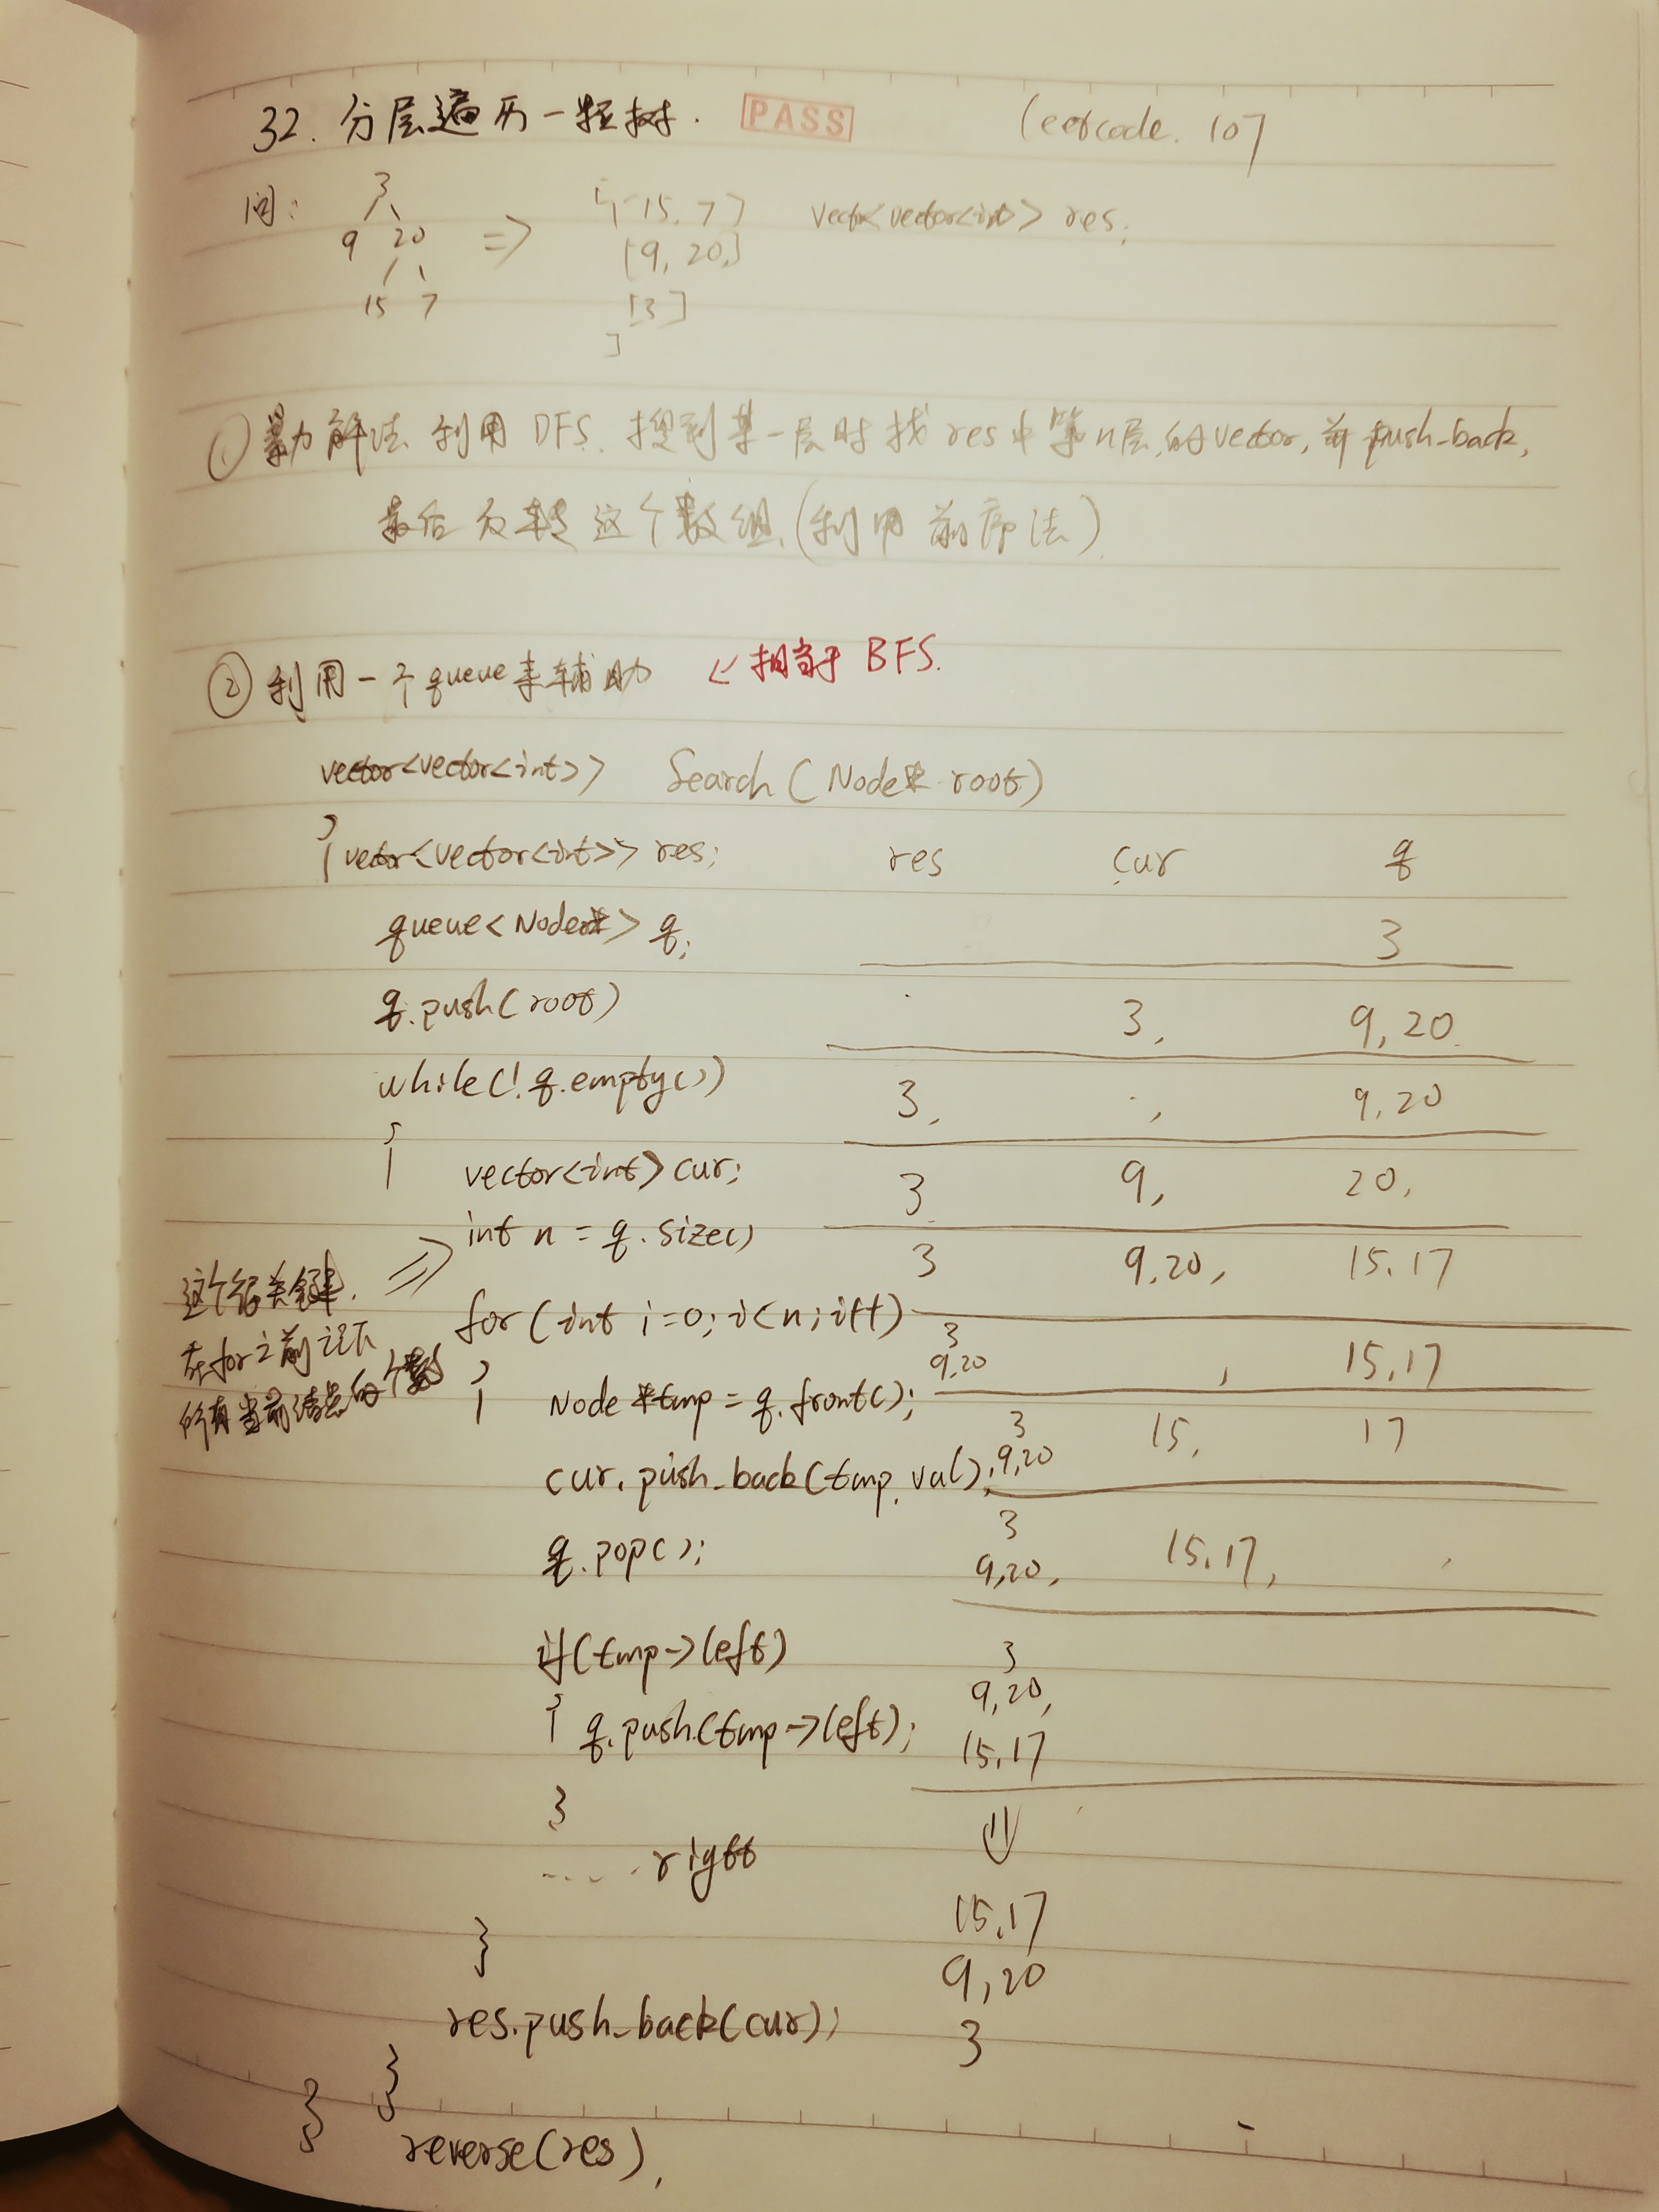 32. 分层遍历一颗树. PASS leetcode. 107
问: 3
9 20 =>
15 7
[ [15, 7] vector<vector<int>> res;
[9, 20,]
[3]
]
① 暴力解法 利用 DFS. 搜到某一层时找 res 中第n层的vector, 并push_back,
最后反转这个数组 (利用前序法)
② 利用一个queue来辅助 ← 相当于 BFS.
vector<vector<int>> Search(Node* root)
{ vector<vector<int>> res;
queue<Node*> q;
q.push(root)
while(!q.empty())
{
vector<int> cur;
int n = q.size()
这个很关键.
在for之前记下
所有当前结点的个数
=>
for(int i=0; i<n; i++)
{
Node *tmp = q.front();
cur.push_back(tmp.val);
q.pop();
if(tmp->left)
{ q.push(tmp->left);
}
..... right
}
res.push_back(cur);
}
}
reverse(res),
res cur q
3
3, 9, 20.
3, , 9,20
3 9, 20,
3 9,20, 15.17
3
9,20 , 15,17
3
9,20 15, 17
3
9,20, 15,17, ,
3
9,20,
15,17
⇓
15,17
9,20
3